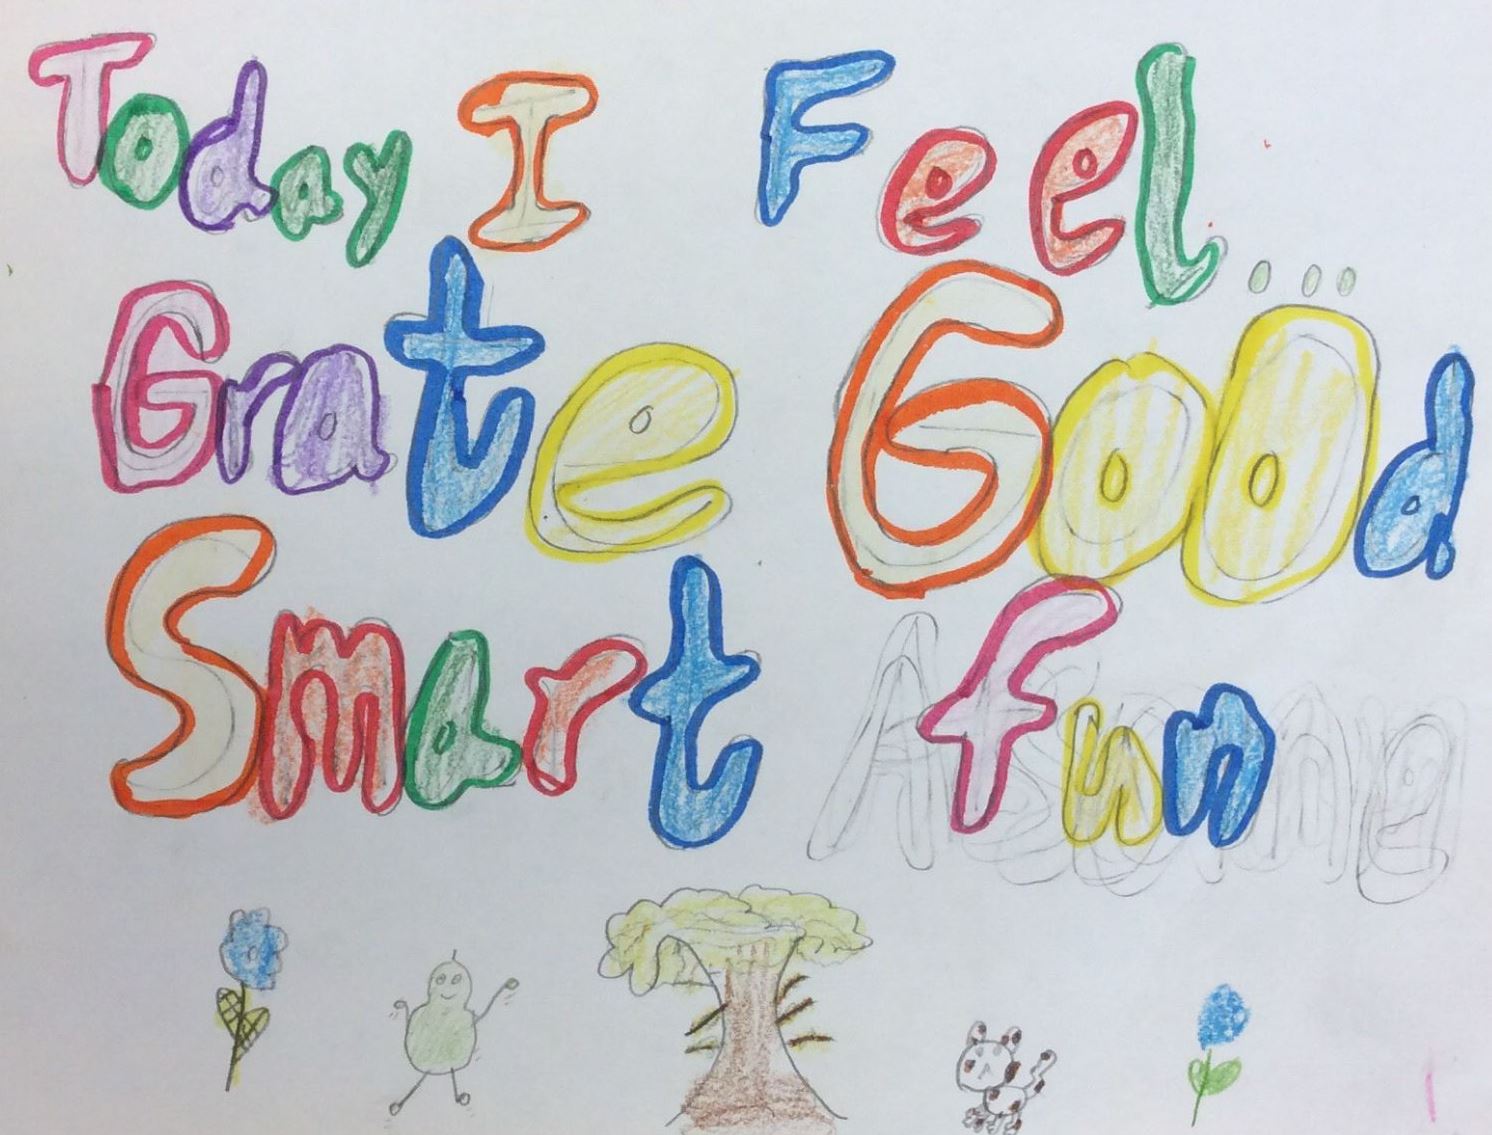 Today I Feel...
Grate Good
Smart fun